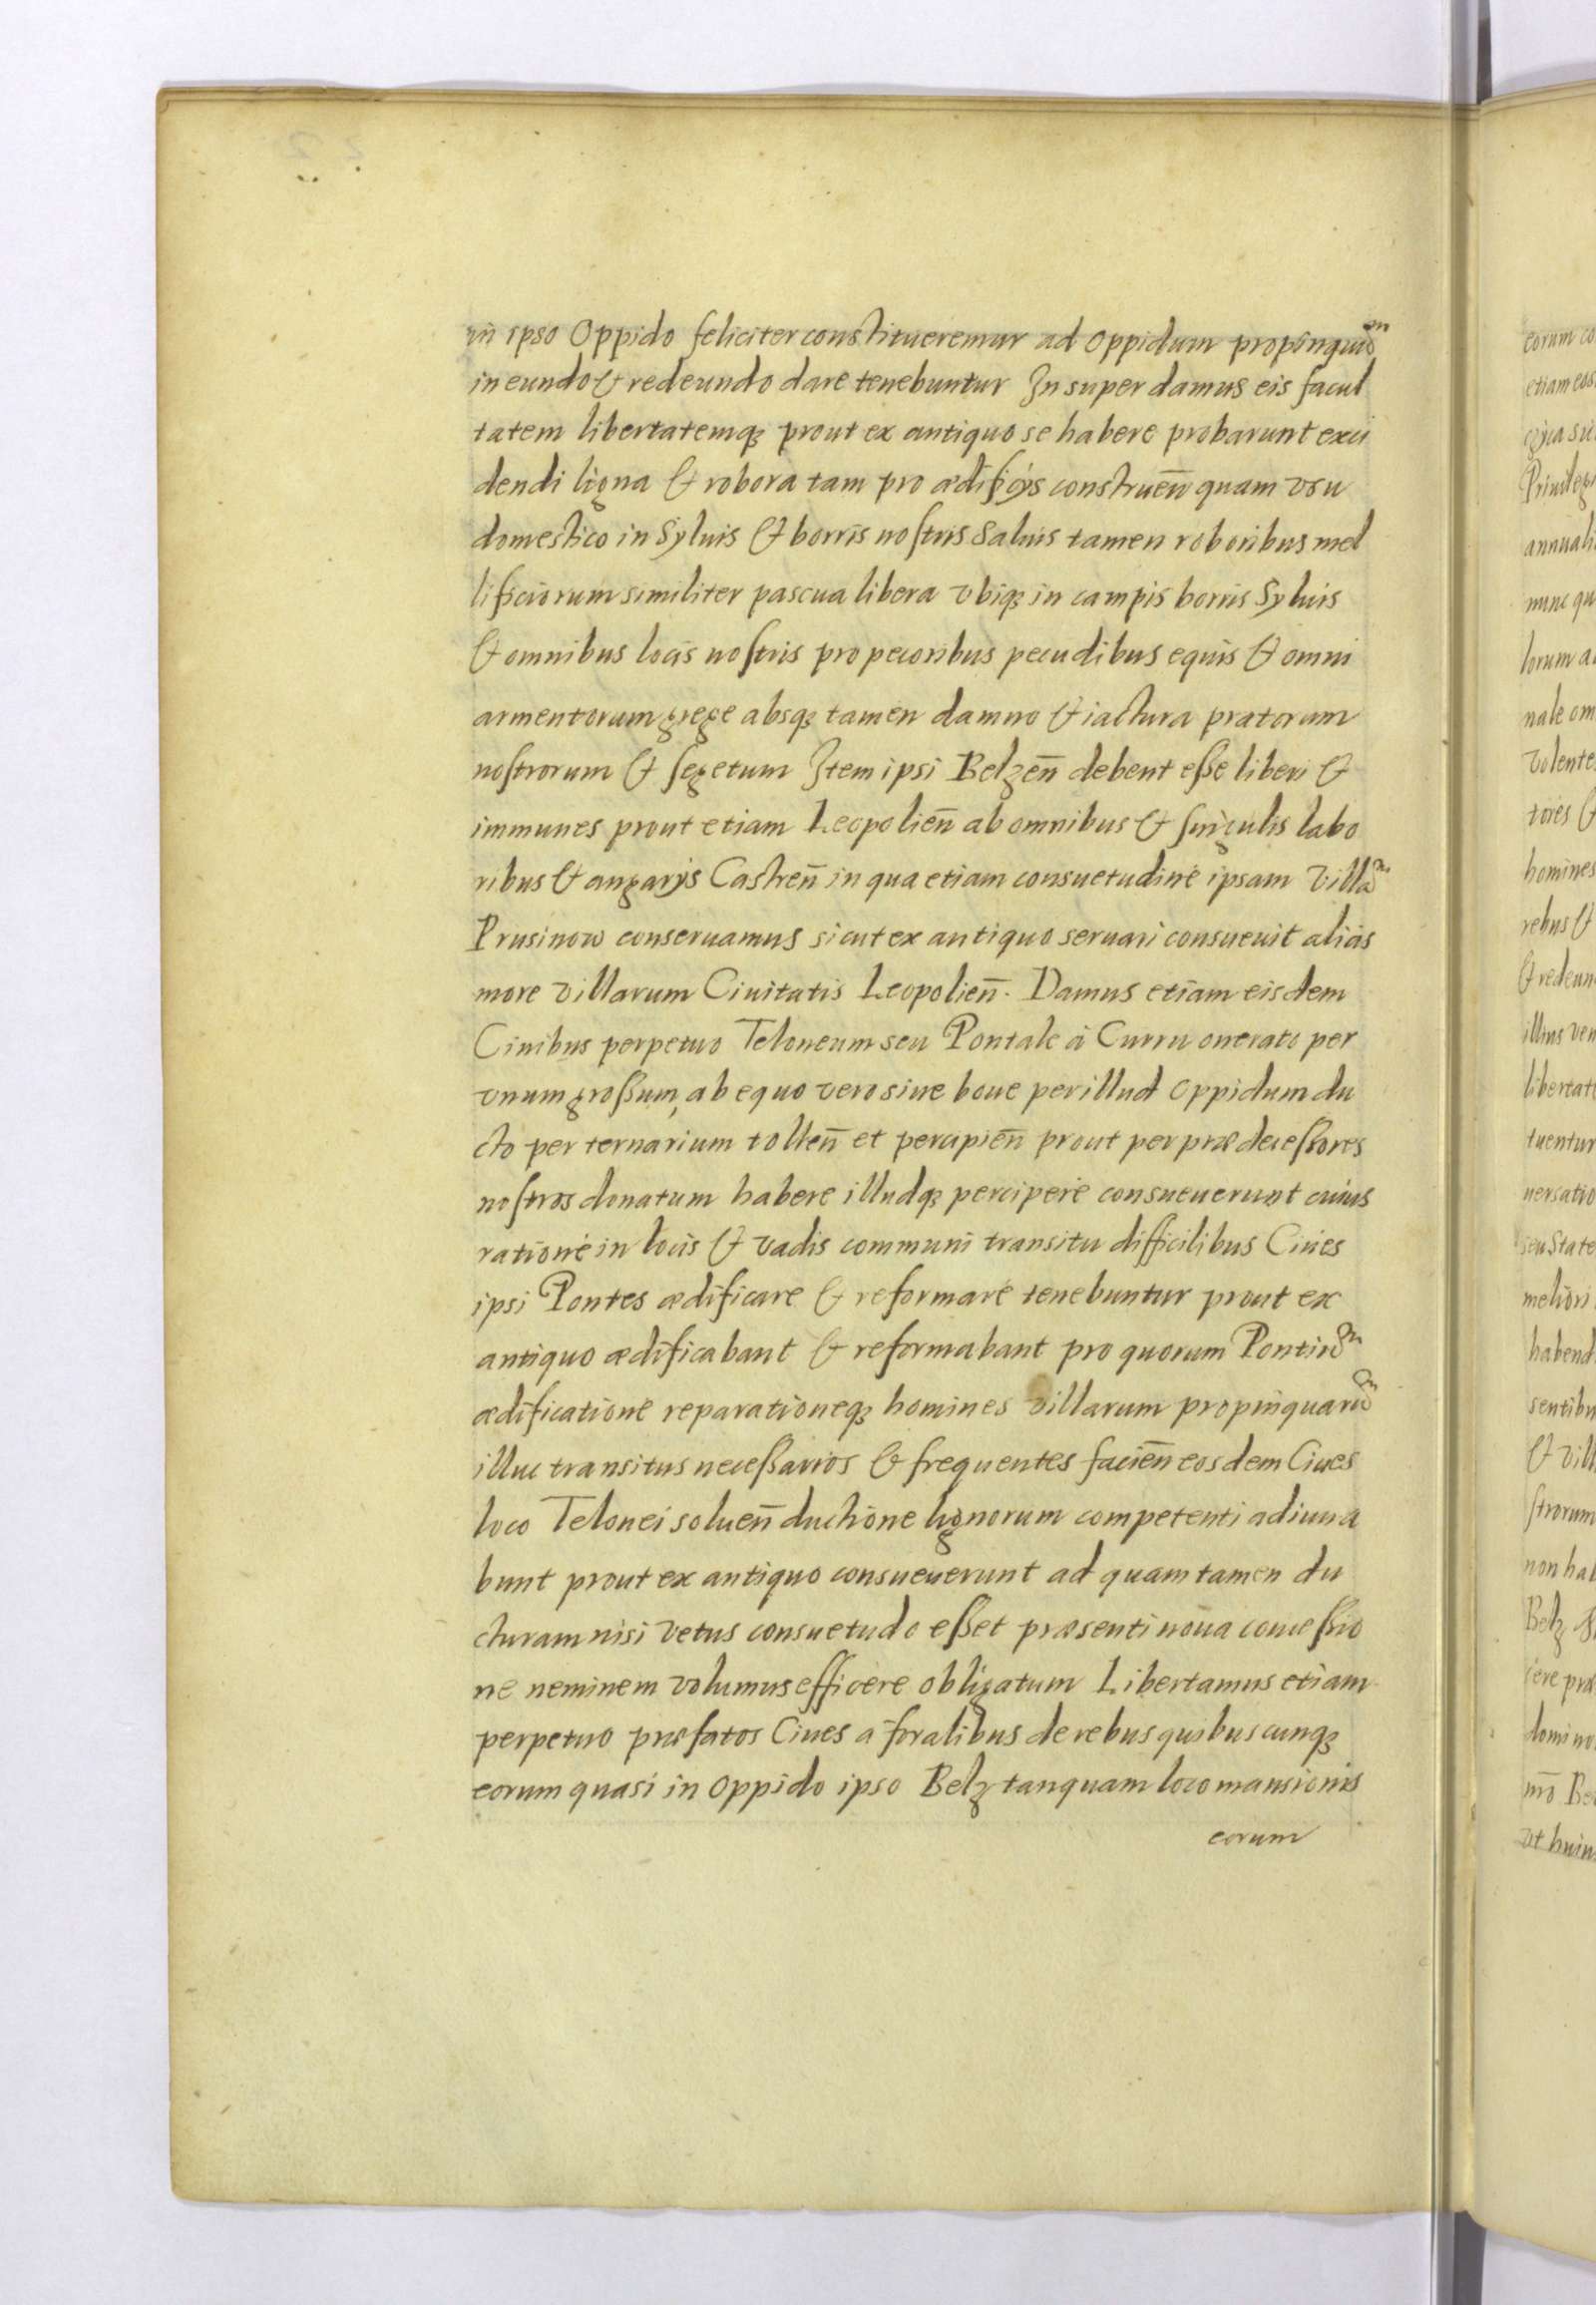 in ipso Oppido feliciter constitueremur ad oppidum propinquũ
in eundo & redeundo dare tenebuntur Insuper damus eis facul
tatem libertatemq₃ prout ex antiquo se habere probarunt exci
dendi ligna & robora tam pro ædificijs construen̄ quam vsu
domestico in Syluis & borris nostris Saluis tamen roboribus mel
lificiorum similiter pascua libera vbiq₃ in campis borris Syluis
& omnibus locis nostris pro pecoribus pecudibus equis & omni
armentorum grege absq₃ tamen damno & iactura pratorum
nostrorum & segetum Item ipsi Belzen̄ debent eße liberi &
immunes prout etiam Leopolien̄ ab omnibus & singulis labo
ribus & angarijs Castren̄ in qua etiam consuetudine ipsam villã
Prusinow conseruamus sicut ex antiquo seruari consueuit alias
more villarum Ciuitatis Leopolien̄. Damus etiam eisdem
Ciuibus perpetuo Teloneum seu Pontale à Curru onerato per
vnum großum, ab equo vero siue boue per illud oppidum du
cto per ternarium tollen̄ et percipien̄ prout per prædeceßores
nostros donatum habere illudq₃ percipere consueuerunt cuius
ratione in locis & vadis communi transitu difficilibus Ciues
ipsi Pontes ædificare & reformare tenebuntur prout ex
antiquo ædificabant & reformabant pro quorum Pontiũ
ædificatione reparationeq₃ homines villarum propinquarũ
illuc transitus neceßarios & frequentes facien̄ eosdem Ciues
loco Telonei soluen̄ ductione lignorum competenti adiuua
bunt prout ex antiquo consueuerunt ad quam tamen du
cturam nisi vetus consuetudo eßet præsenti noua conceßio
ne neminem volumus efficere obligatum Libertamus etiam
perpetuo præfatos Ciues à foralibus de rebus quibuscunq₃
eorum quasi in oppido ipso Belz tanquam loco mansionis
eorum
eorum co
etiam eos
Priuileg
annuali
nunc qu
lorum a
nale om
volente
tores &
homines
rebus &
& redeun
illius ven
libertat
tuentur
uersatio
seu State
meliori
habend
sentibu
& vill
strorum
non hab
Belz
cere præ
domino
vt huiu